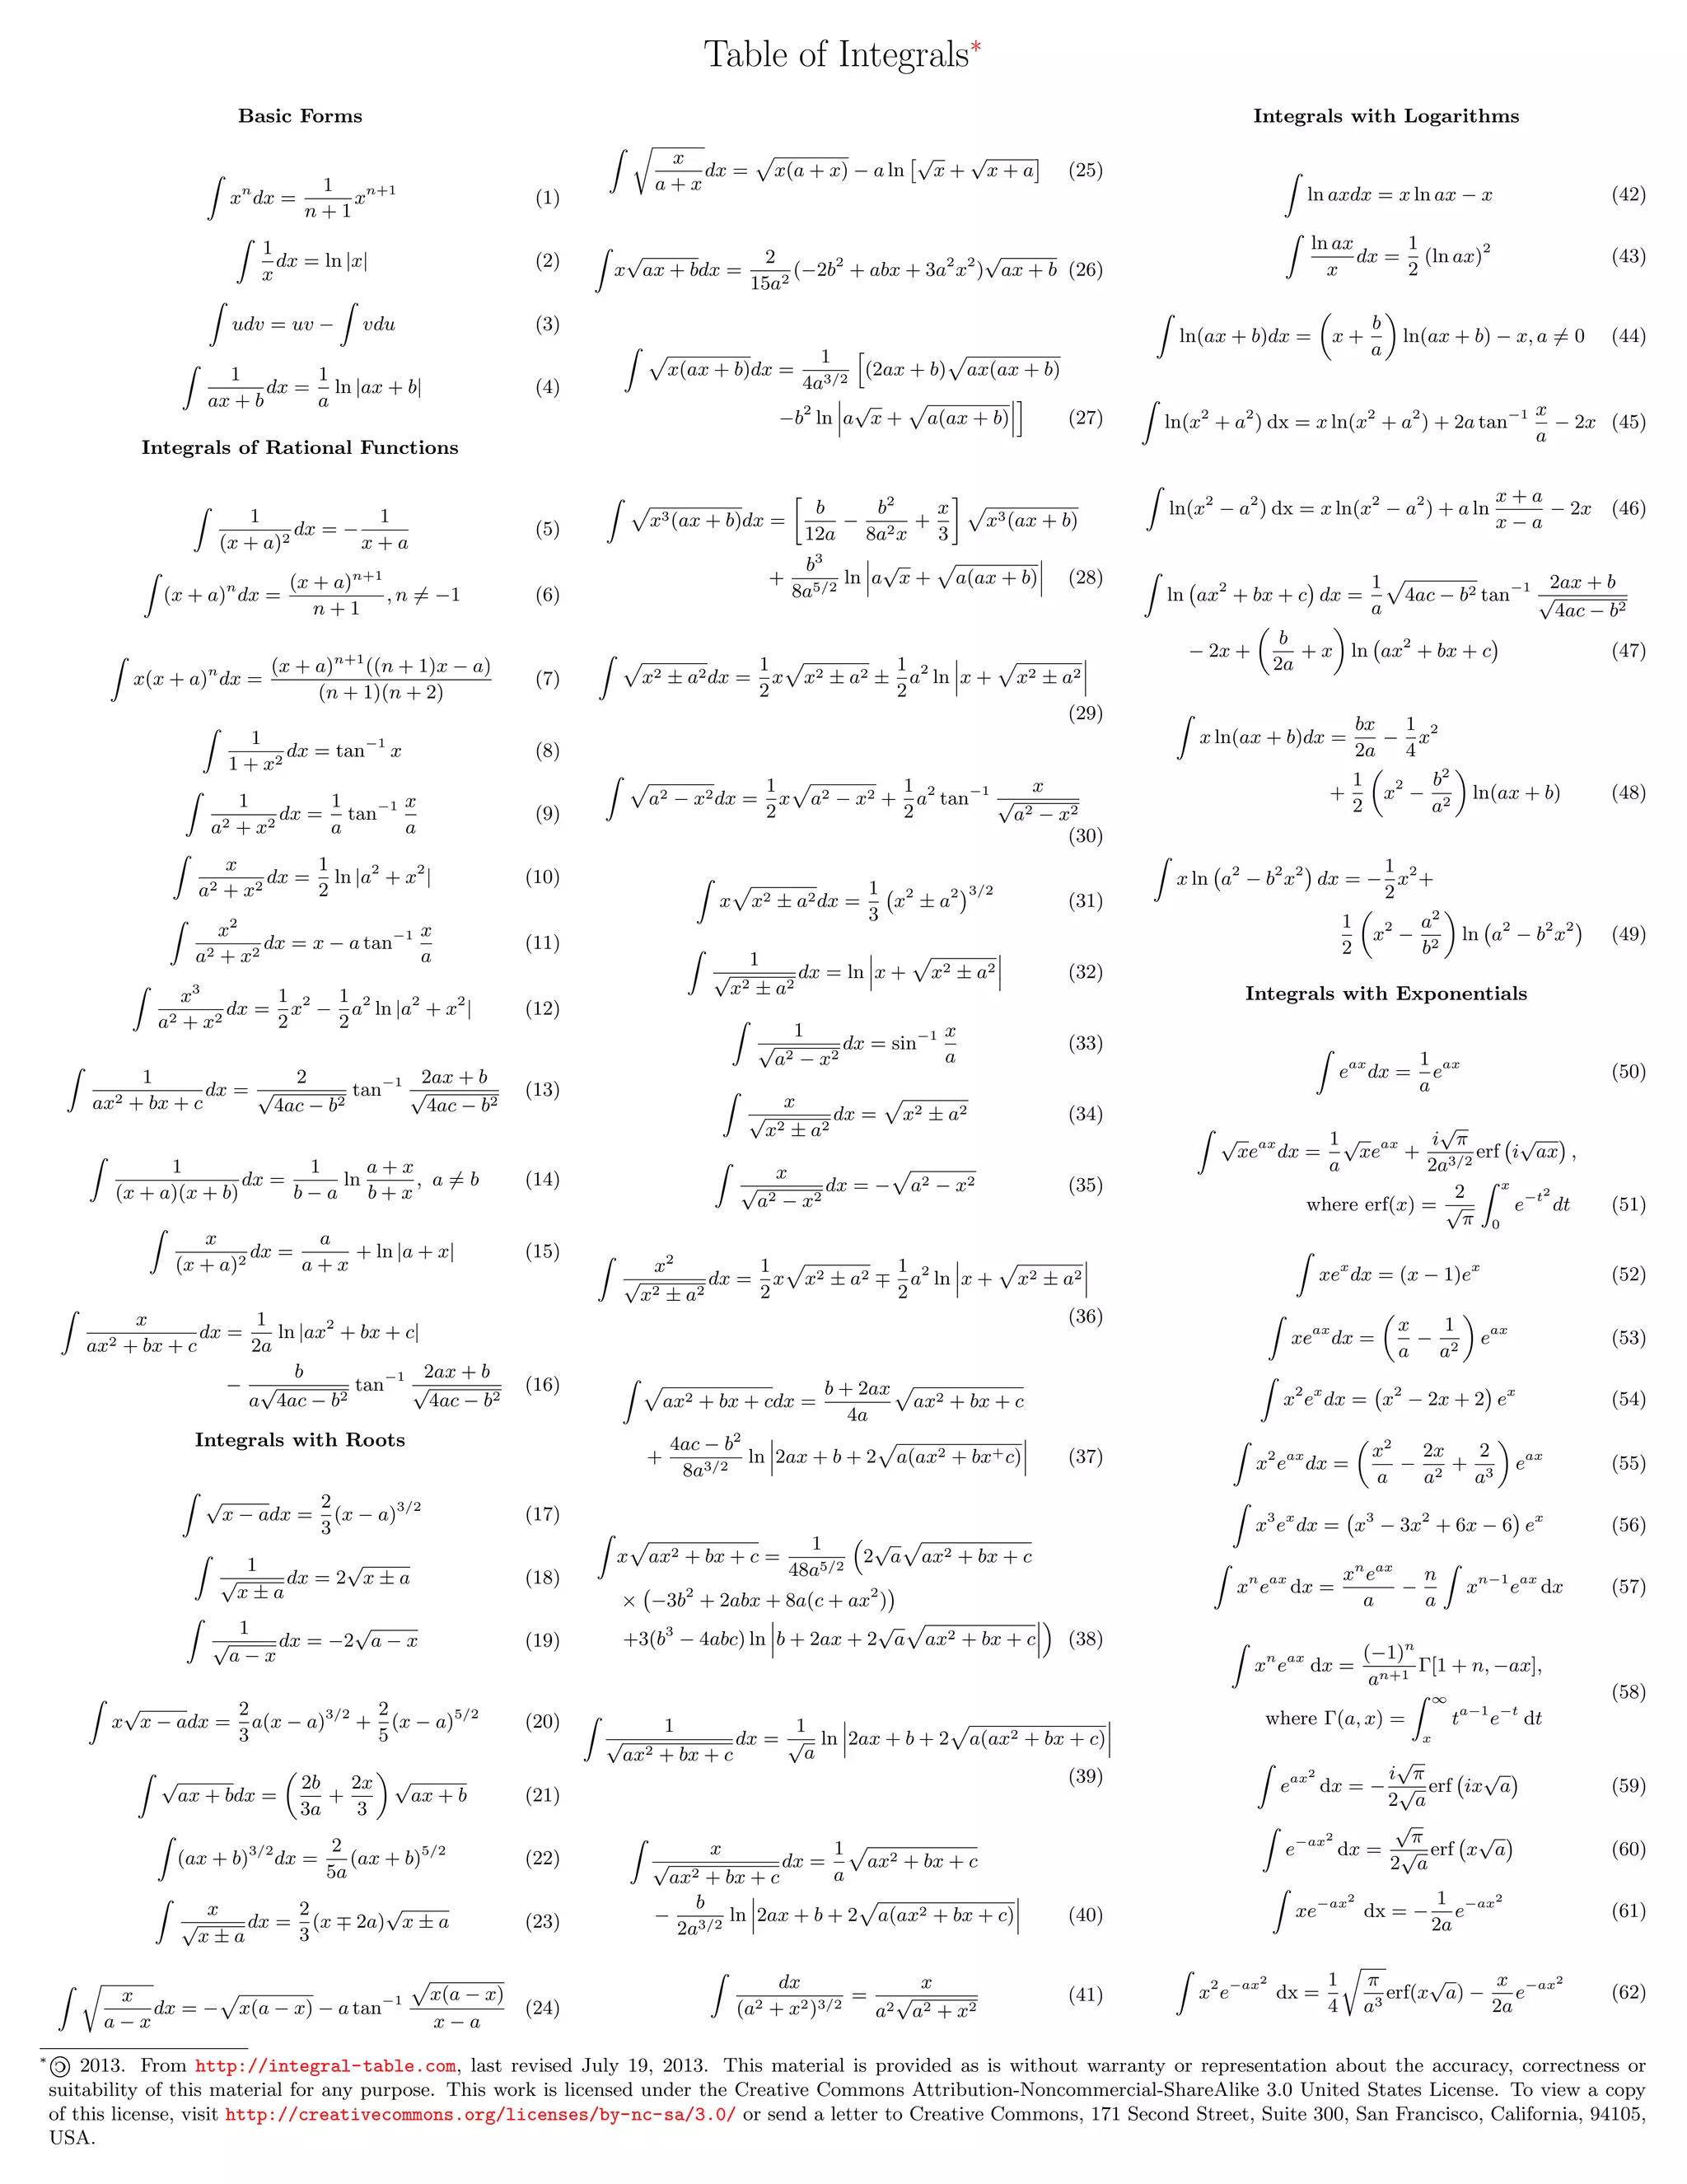 Table of Integrals*
Basic Forms
∫ xⁿdx = 1/(n + 1) xⁿ⁺¹ (1)
∫ 1/x dx = ln |x| (2)
∫ udv = uv − ∫ vdu (3)
∫ 1/(ax + b) dx = 1/a ln |ax + b| (4)
Integrals of Rational Functions
∫ 1/(x + a)² dx = − 1/(x + a) (5)
∫ (x + a)ⁿdx = (x + a)ⁿ⁺¹/(n + 1), n ≠ −1 (6)
∫ x(x + a)ⁿdx = (x + a)ⁿ⁺¹((n + 1)x − a)/((n + 1)(n + 2)) (7)
∫ 1/(1 + x²) dx = tan⁻¹ x (8)
∫ 1/(a² + x²) dx = 1/a tan⁻¹ x/a (9)
∫ x/(a² + x²) dx = 1/2 ln |a² + x²| (10)
∫ x²/(a² + x²) dx = x − a tan⁻¹ x/a (11)
∫ x³/(a² + x²) dx = 1/2 x² − 1/2 a² ln |a² + x²| (12)
∫ 1/(ax² + bx + c) dx = 2/√(4ac − b²) tan⁻¹ (2ax + b)/√(4ac − b²) (13)
∫ 1/((x + a)(x + b)) dx = 1/(b − a) ln (a + x)/(b + x), a ≠ b (14)
∫ x/(x + a)² dx = a/(a + x) + ln |a + x| (15)
∫ x/(ax² + bx + c) dx = 1/(2a) ln |ax² + bx + c|
− b/(a√(4ac − b²)) tan⁻¹ (2ax + b)/√(4ac − b²) (16)
Integrals with Roots
∫ √(x − a)dx = 2/3 (x − a)^(3/2) (17)
∫ 1/√(x ± a) dx = 2√(x ± a) (18)
∫ 1/√(a − x) dx = −2√(a − x) (19)
∫ x√(x − a)dx = 2/3 a(x − a)^(3/2) + 2/5 (x − a)^(5/2) (20)
∫ √(ax + b)dx = (2b/3a + 2x/3) √(ax + b) (21)
∫ (ax + b)^(3/2)dx = 2/(5a) (ax + b)^(5/2) (22)
∫ x/√(x ± a) dx = 2/3 (x ∓ 2a)√(x ± a) (23)
∫ √(x/(a − x)) dx = −√(x(a − x)) − a tan⁻¹ √(x(a − x))/(x − a) (24)
∫ √(x/(a + x)) dx = √(x(a + x)) − a ln [√x + √(x + a)] (25)
∫ x√(ax + b)dx = 2/(15a²) (−2b² + abx + 3a²x²)√(ax + b) (26)
∫ √(x(ax + b))dx = 1/(4a^(3/2)) [(2ax + b)√(ax(ax + b))
−b² ln |a√x + √(a(ax + b))|] (27)
∫ √(x³(ax + b))dx = [b/(12a) − b²/(8a²x) + x/3] √(x³(ax + b))
+ b³/(8a^(5/2)) ln |a√x + √(a(ax + b))| (28)
∫ √(x² ± a²)dx = 1/2 x√(x² ± a²) ± 1/2 a² ln |x + √(x² ± a²)|
(29)
∫ √(a² − x²)dx = 1/2 x√(a² − x²) + 1/2 a² tan⁻¹ x/√(a² − x²)
(30)
∫ x√(x² ± a²)dx = 1/3 (x² ± a²)^(3/2) (31)
∫ 1/√(x² ± a²) dx = ln |x + √(x² ± a²)| (32)
∫ 1/√(a² − x²) dx = sin⁻¹ x/a (33)
∫ x/√(x² ± a²) dx = √(x² ± a²) (34)
∫ x/√(a² − x²) dx = −√(a² − x²) (35)
∫ x²/√(x² ± a²) dx = 1/2 x√(x² ± a²) ∓ 1/2 a² ln |x + √(x² ± a²)|
(36)
∫ √(ax² + bx + c)dx = (b + 2ax)/(4a) √(ax² + bx + c)
+ (4ac − b²)/(8a^(3/2)) ln |2ax + b + 2√(a(ax² + bx⁺c))| (37)
∫ x√(ax² + bx + c) = 1/(48a^(5/2)) (2√a√(ax² + bx + c)
× (−3b² + 2abx + 8a(c + ax²))
+3(b³ − 4abc) ln |b + 2ax + 2√a√(ax² + bx + c)|) (38)
∫ 1/√(ax² + bx + c) dx = 1/√a ln |2ax + b + 2√(a(ax² + bx + c))|
(39)
∫ x/√(ax² + bx + c) dx = 1/a √(ax² + bx + c)
− b/(2a^(3/2)) ln |2ax + b + 2√(a(ax² + bx + c))| (40)
∫ dx/(a² + x²)^(3/2) = x/(a²√(a² + x²)) (41)
Integrals with Logarithms
∫ ln axdx = x ln ax − x (42)
∫ ln ax/x dx = 1/2 (ln ax)² (43)
∫ ln(ax + b)dx = (x + b/a) ln(ax + b) − x, a ≠ 0 (44)
∫ ln(x² + a²) dx = x ln(x² + a²) + 2a tan⁻¹ x/a − 2x (45)
∫ ln(x² − a²) dx = x ln(x² − a²) + a ln (x + a)/(x − a) − 2x (46)
∫ ln (ax² + bx + c) dx = 1/a √(4ac − b²) tan⁻¹ (2ax + b)/√(4ac − b²)
− 2x + (b/2a + x) ln (ax² + bx + c) (47)
∫ x ln(ax + b)dx = bx/2a − 1/4 x²
+ 1/2 (x² − b²/a²) ln(ax + b) (48)
∫ x ln (a² − b²x²) dx = −1/2 x²+
1/2 (x² − a²/b²) ln (a² − b²x²) (49)
Integrals with Exponentials
∫ e^(ax)dx = 1/a e^(ax) (50)
∫ √x e^(ax)dx = 1/a √x e^(ax) + i√π/(2a^(3/2)) erf (i√(ax)),
where erf(x) = 2/√π ∫₀ˣ e^(−t²)dt (51)
∫ xeˣdx = (x − 1)eˣ (52)
∫ xe^(ax)dx = (x/a − 1/a²) e^(ax) (53)
∫ x²eˣdx = (x² − 2x + 2) eˣ (54)
∫ x²e^(ax)dx = (x²/a − 2x/a² + 2/a³) e^(ax) (55)
∫ x³eˣdx = (x³ − 3x² + 6x − 6) eˣ (56)
∫ xⁿe^(ax) dx = xⁿe^(ax)/a − n/a ∫ xⁿ⁻¹e^(ax) dx (57)
∫ xⁿe^(ax) dx = (−1)ⁿ/aⁿ⁺¹ Γ[1 + n, −ax],
(58)
where Γ(a, x) = ∫ₓ^∞ t^(a−1)e^(−t) dt
∫ e^(ax²) dx = − i√π/(2√a) erf (ix√a) (59)
∫ e^(−ax²) dx = √π/(2√a) erf (x√a) (60)
∫ xe^(−ax²) dx = − 1/(2a) e^(−ax²) (61)
∫ x²e^(−ax²) dx = 1/4 √(π/a³) erf(x√a) − x/(2a) e^(−ax²) (62)
*🄯 2013. From http://integral-table.com, last revised July 19, 2013. This material is provided as is without warranty or representation about the accuracy, correctness or
suitability of this material for any purpose. This work is licensed under the Creative Commons Attribution-Noncommercial-ShareAlike 3.0 United States License. To view a copy
of this license, visit http://creativecommons.org/licenses/by-nc-sa/3.0/ or send a letter to Creative Commons, 171 Second Street, Suite 300, San Francisco, California, 94105,
USA.